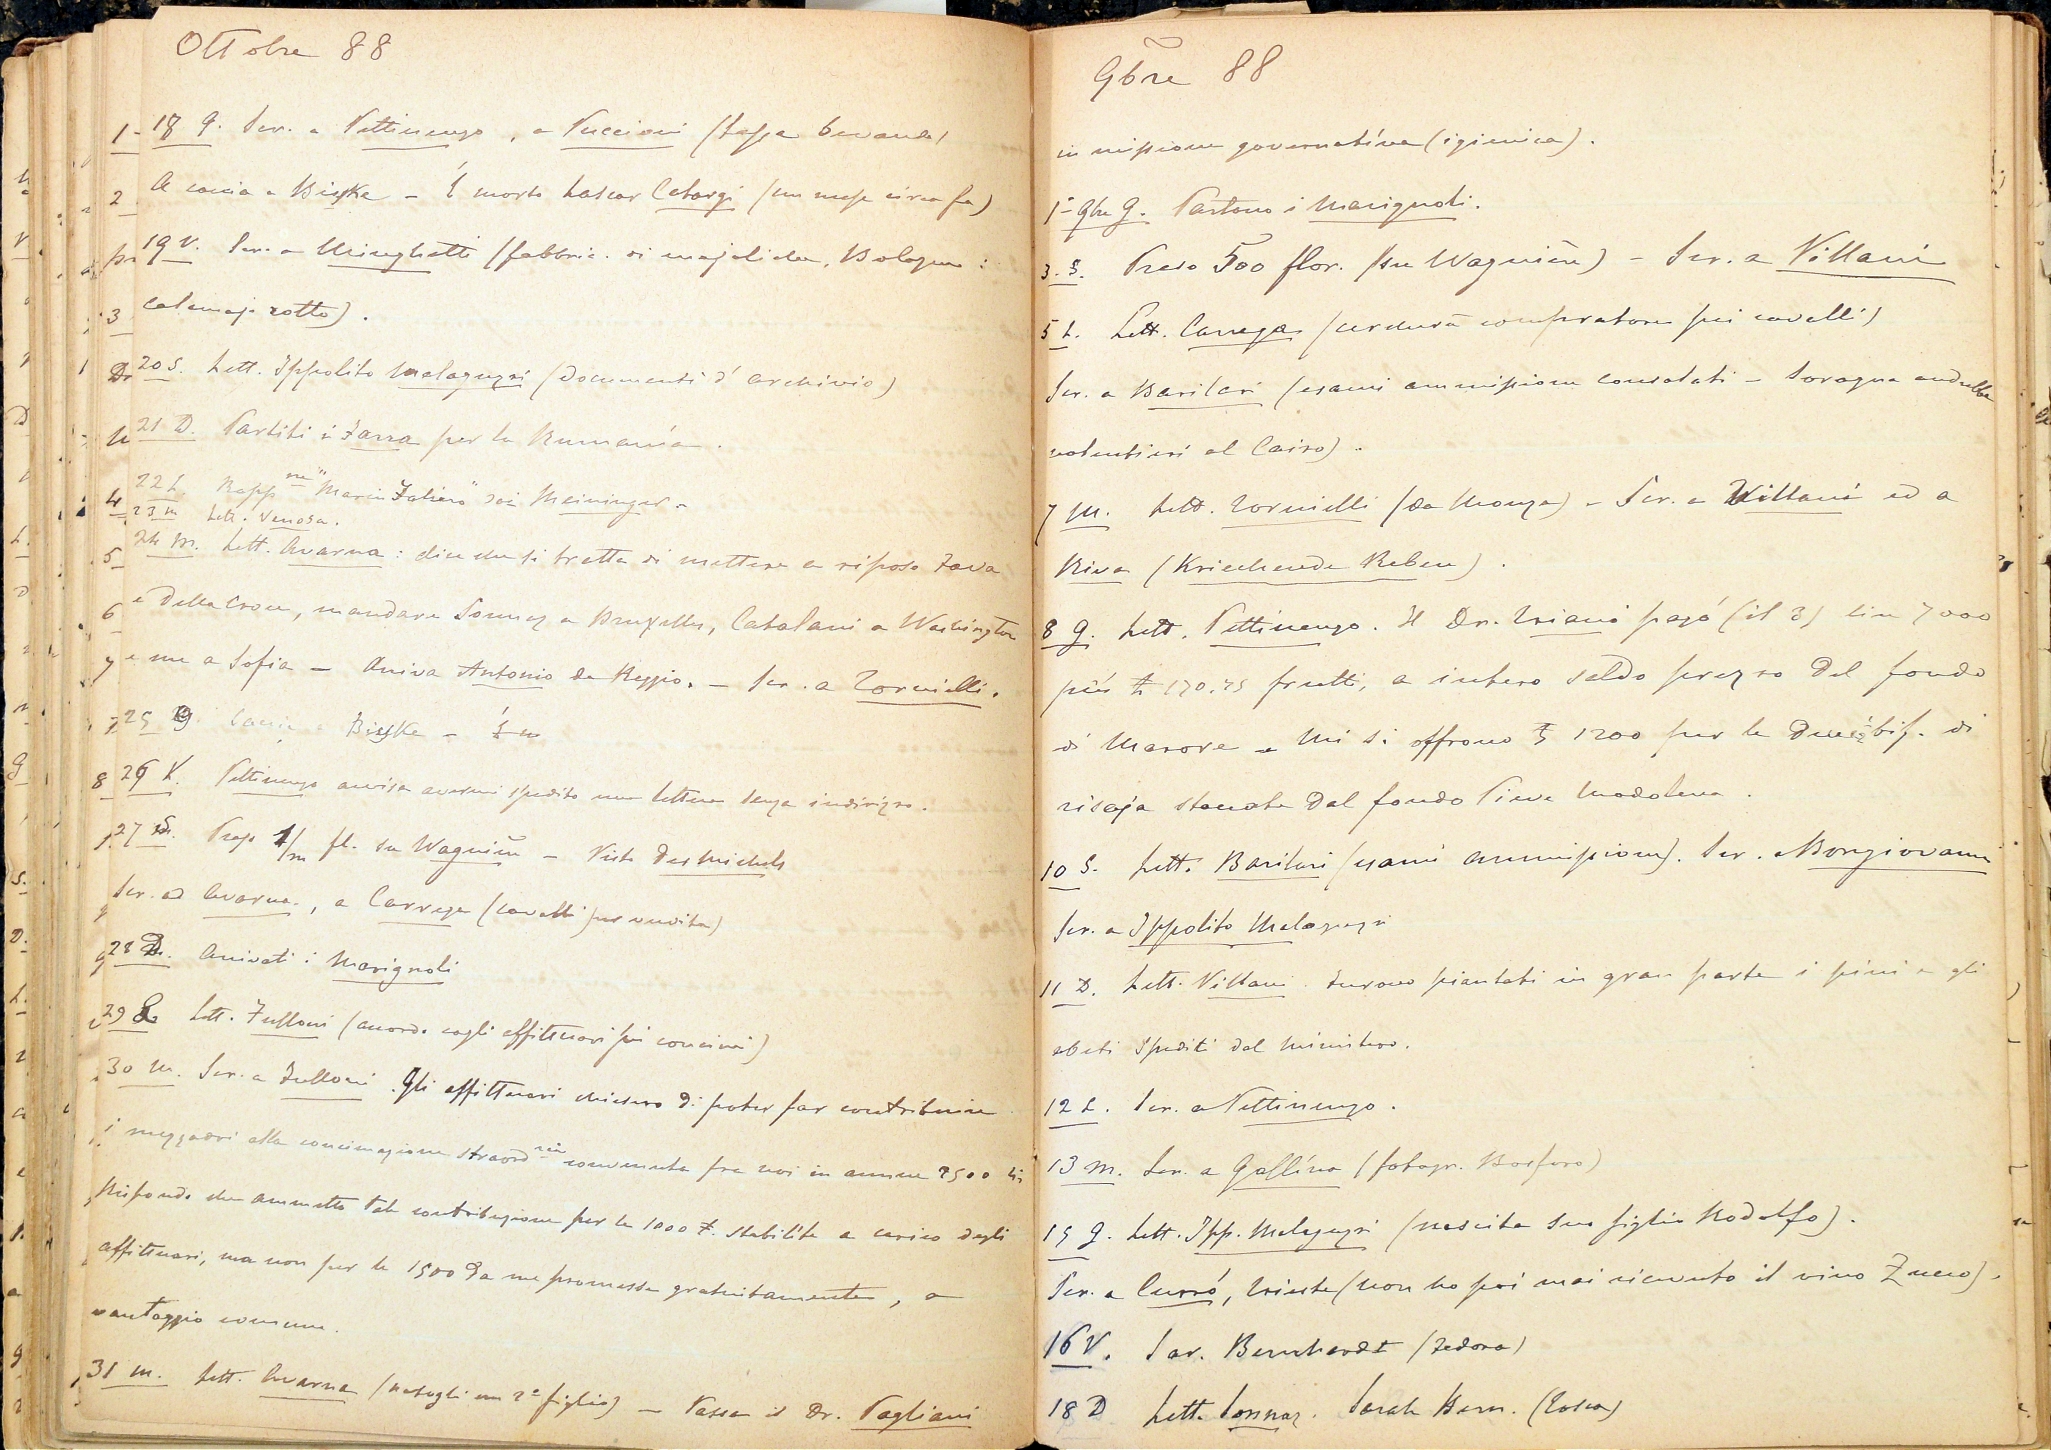 Ottobre 88
18 G. Scr. a Pettinengo, a Puccioni (tassa bevande)
A caccia a Biske - È morto Lascar Catargi (un mese circa fa)
19 V. Scr. a Minghetti (fabbric. di majoliche, Bologna:
calamajo rotto).
20 S. Lett. Ippolito Malaguzzi (documenti d'archivio)
21 D. Partiti i Farra per la Rumania.
22 L. Rapp.ne "Marin Faliero" dai Meininger.
23 M Lett. Venosa.
24 M. Lett. Avarna: dice che si tratta di mettere a riposo Fava
e Della Croce, mandare Sonnaz a Bruxelles, Catalani a Washington
e me a Sofia - Arriva Antonio da Reggio. - Scr. a Tornielli.
25 G Caccia a Biske - È m
26 V. Pettinengo avvisa avermi spedito una lettera senza indirizzo.
27 S. Preso 1/m fl. su Wagnièr - Visto Des Michels
Scr. ad Avarna, a Carrega (cavalli per vendita)
28 D. Arrivati i Marignoli
29 L Lett. Fulloni (accordo cogli affittuari pei concimi)
30 M. Scr. a Fulloni. Gli affittuari chiesero di poter far contribuire
i mezzadri alla concimazione straord.ria convenuta fra noi in annue 2500 lir
Rispondo che ammetto tale contribuzione per le 1000 £. stabilite a carico degli
affittuari, ma non per le 1500 da me promesse gratuitamente, a
vantaggio comune.
31 M. Lett. Avarna (natogli un 2° figlio) - Passa il Dr. Pagliani
9bre 88
in missione governativa (igienica).
1° 9bre G. Partono i Marignoli.
3. S. Preso 500 flor. (su Wagnièr) - Scr. a Villani
5 L. Lett. Carrega (cercherà compratore pei cavalli)
Scr. a Barilari (esami ammissione consolati - Soragna andrebbe
volentieri al Cairo).
7 M. Lett. Tornielli (da Monza) - Scr. a Villani ed a
Riva (Kriechende Reben).
8 G. Lett. Pettinengo. Il Dr. Triani pagò (il 3) lire 7000
più £ 170.75 frutti, a intero saldo prezzo del fondo
di Marore - Mi si offrono £ 1200 per le due bif. di
risaja staccate dal fondo Pieve Modolena.
10 S. Lett. Barilari (esami ammissione). Scr. a Bongiovanni
Scr. a Ippolito Malaguzzi
11 D. Lett. Villani. Furono piantati in gran parte i pini e gli
abeti spediti dal Ministero.
12 L. Scr. a Pettinengo.
13 M. Scr. a Gallina (fotogr. Bosforo)
15 G. Lett. Ipp. Malaguzzi (nascita suo figlio Rodolfo).
Scr. a Currò, Trieste (non ho poi mai ricevuto il vino Zucco).
16 V. Sar. Bernhardt (Fedora)
18 D Lett. Sonnaz. Sarah Bern. (Tosca)